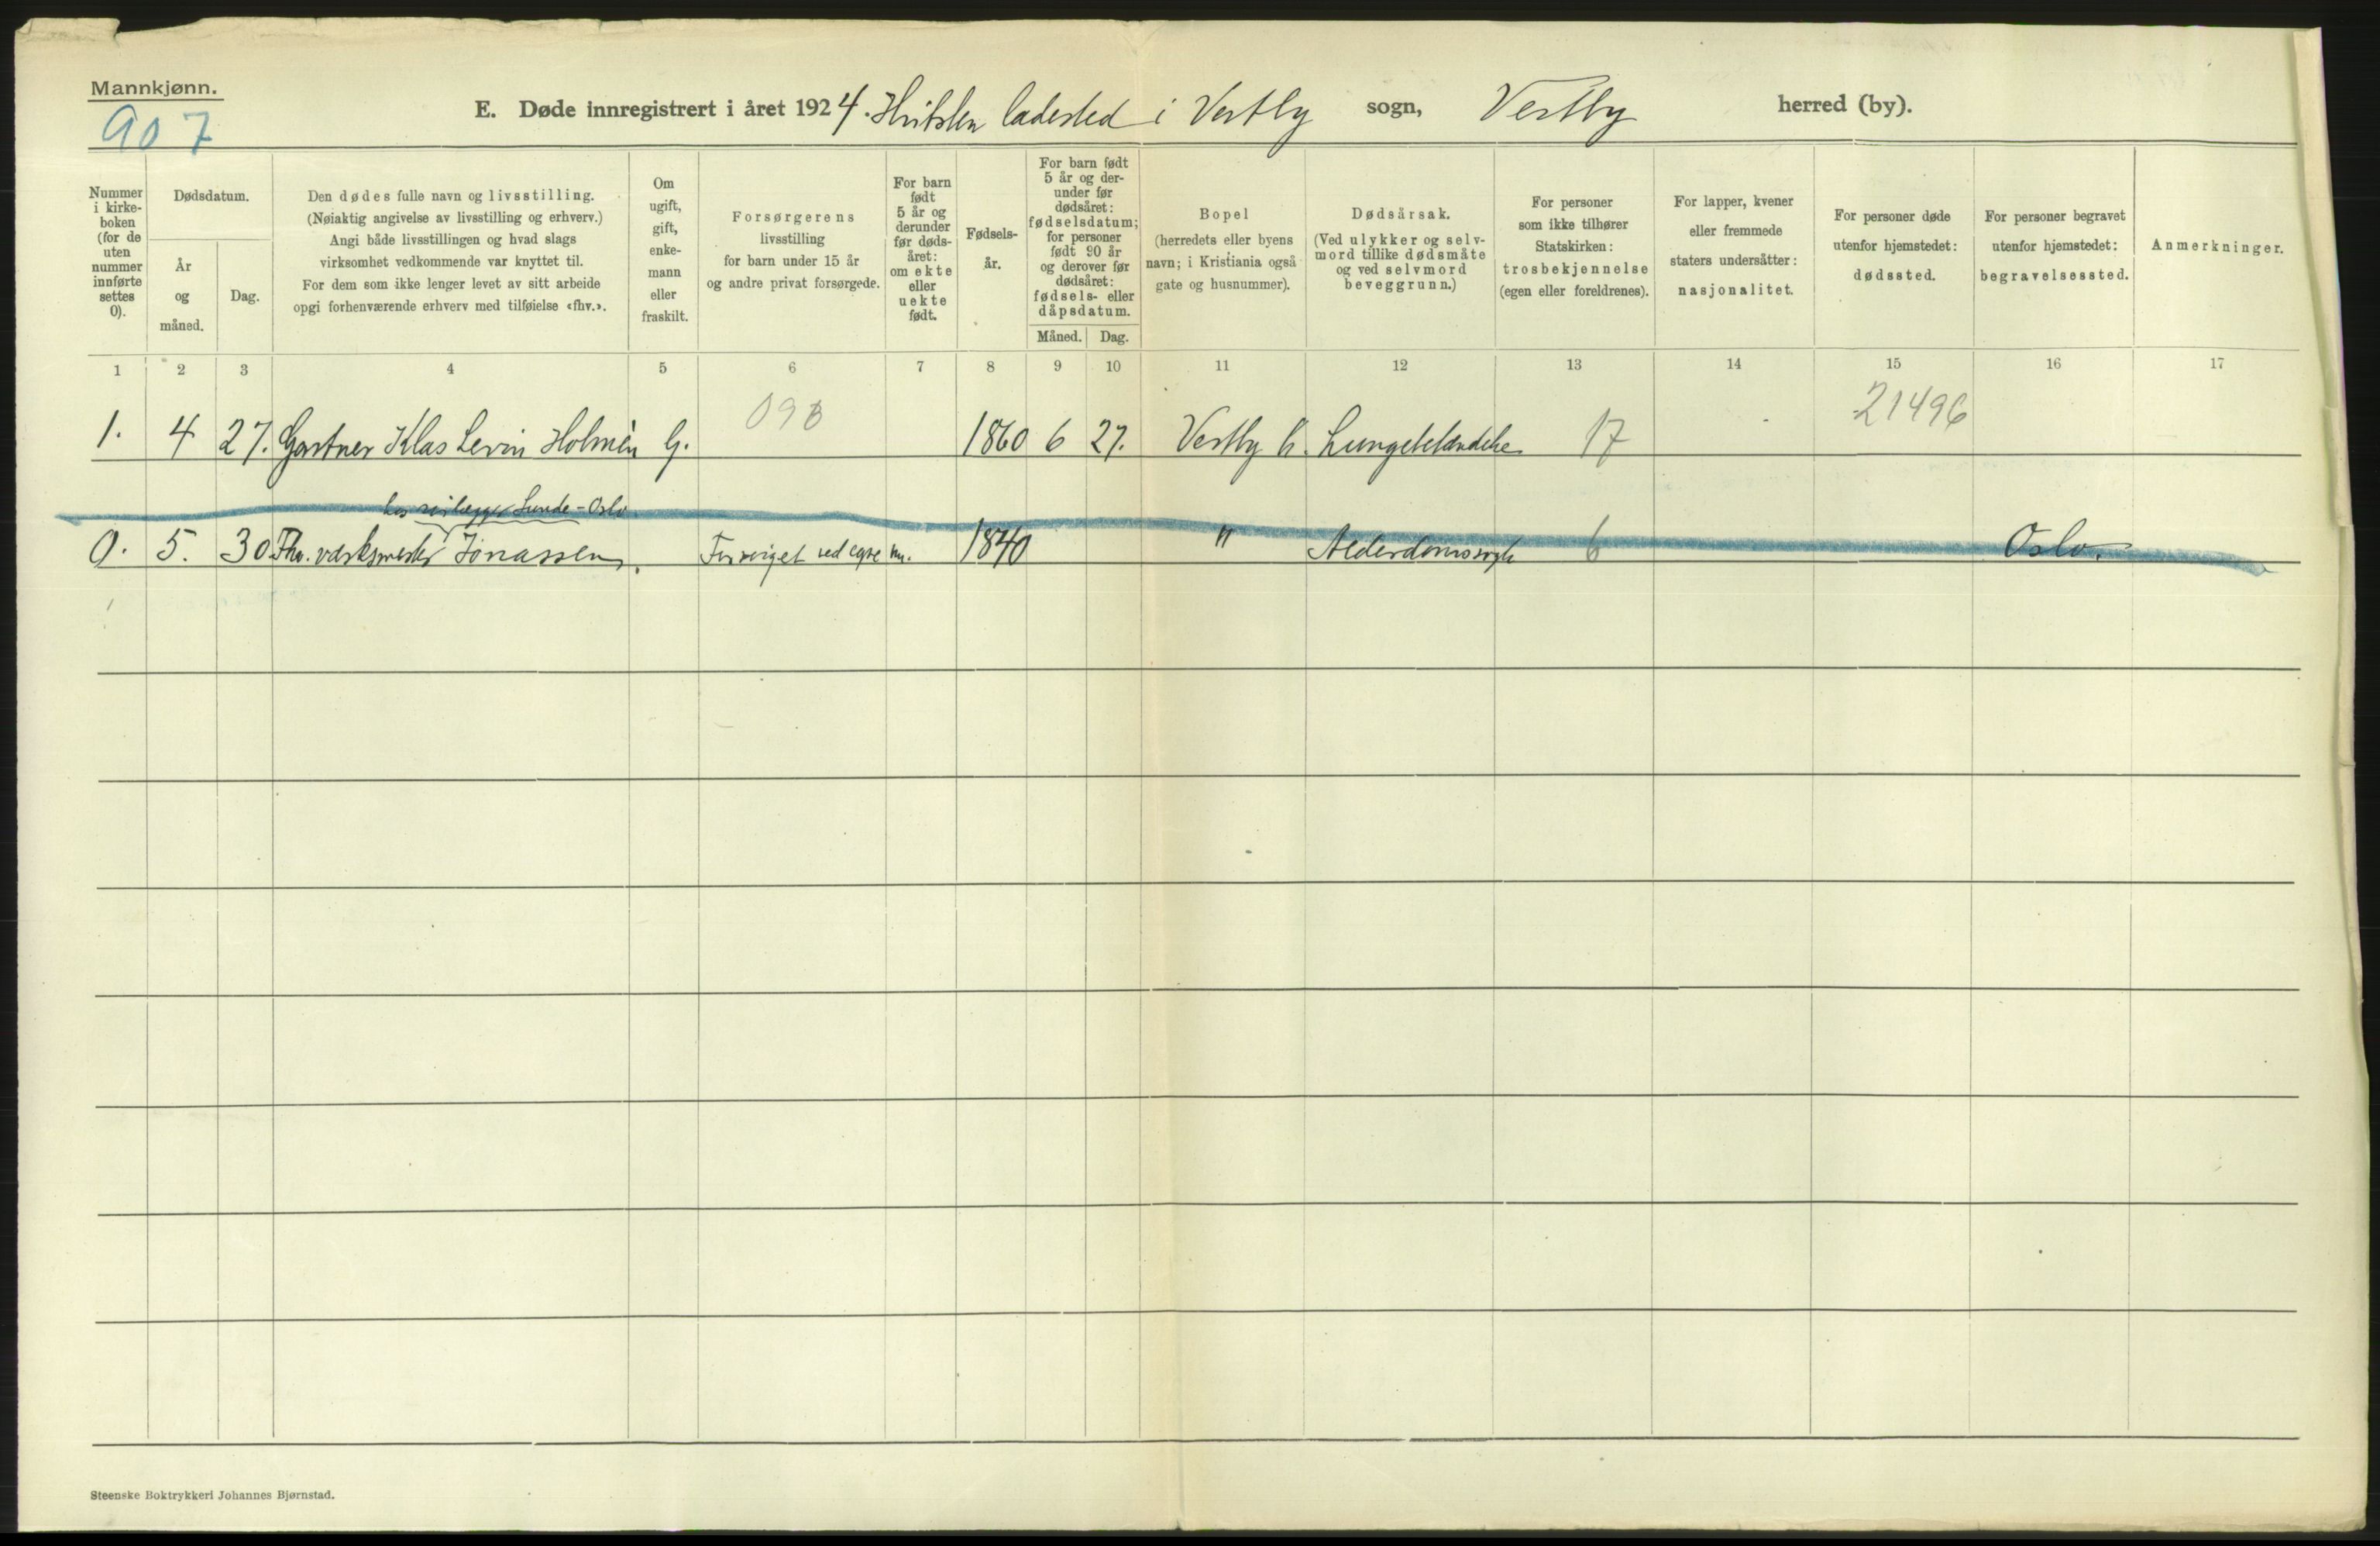 Mannkjønn.
907
E. Døde innregistrert i året 1924. Hvitsten ladested i Vestby sogn, Vestby herred (by).
Nummer
i kirke-
boken
(for de
uten
nummer
innførte
settes
0).
Dødsdatum.
År
og
måned.
Dag.
Den dødes fulle navn og livsstilling.
(Nøiaktig angivelse av livsstilling og erhverv.)
Angi både livsstillingen og hvad slags
virksomhet vedkommende var knyttet til.
For dem som ikke lenger levet av sitt arbeide
opgi forhenværende erhverv med tilføielse «fhv.».
Om
ugift,
gift,
enke-
mann
eller
fraskilt.
Forsørgerens
livsstilling
for barn under 15 år
og andre privat forsørgede.
For barn
født
5 år og
derunder
før døds-
året:
om ekte
eller
uekte
født.
Fødsels-
år.
For barn født
5 år og der-
under før
dødsåret:
fødselsdatum;
for personer
født 90 år
og derover før
dødsåret:
fødsels- eller
dåpsdatum.
Måned.
Dag.
Bopel
(herredets eller byens
navn; i Kristiania også
gate og husnummer).
Dødsårsak.
(Ved ulykker og selv-
mord tillike dødsmåte
og ved selvmord
beveggrunn.)
For personer
som ikke tilhører
Statskirken:
trosbekjennelse
(egen eller foreldrenes).
For lapper, kvener
eller fremmede
staters undersåtter:
nasjonalitet.
For personer døde
utenfor hjemstedet:
dødssted.
For personer begravet
utenfor hjemstedet:
begravelsessted.
Anmerkninger.
1 2 3 4 5 6 7 8 9 10 11 12 13 14 15 16 17
098 21496
1. 4 27. Gartner Klas Levin Holmèn G. 1860 6 27. Vestby h. Lungebetændelse 17
hos Lunde - Oslo
0. 5. 30 Fhv. værksmester Jonassen. ved egne 1840 " Alderdomssvgh 6 Oslo.
Steenske Boktrykkeri Johannes Bjørnstad.